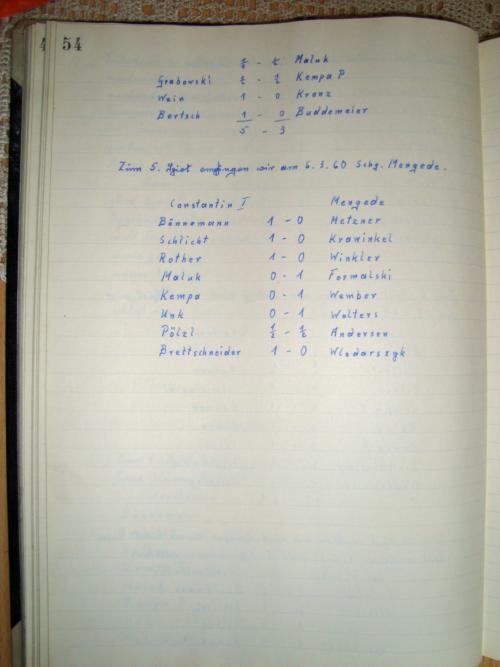 54
½ - ½ Maluk
Grabowski ½ - ½ Kempa P
Wein 1 - 0 Kranz
Bertsch 1 - 0 Buddemeier
5 - 3
Zum 5. Spiel empfingen wir am 6.3.60 Schg. Mengede.
Constantin I Mengede
Bönnemann 1 - 0 Metzner
Schlicht 1 - 0 Krawinkel
Rother 1 - 0 Winkler
Maluk 0 - 1 Formalski
Kempa 0 - 1 Wember
Unk 0 - 1 Wolters
Pölzl ½ - ½ Andersen
Brettschneider 1 - 0 Wlodarszyk